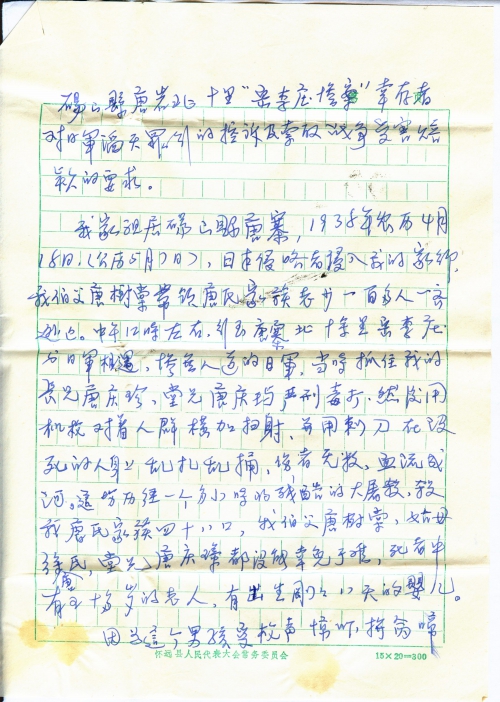 砀山縣唐寨北十里"梁李庄惨案"幸存者
对日軍滔天罪行的控诉及索取战争受害赔
款的要求。
我家祖居砀山县唐寨，1938年农历4月
18日(公历5月17日)，日本侵略者侵入我的家鄉，
我伯父唐樹棠带领唐氏家族老少一百多人一齐
逃亡。中午12時左右，到了唐寨北十里梁李庄
与日軍相遇，惨无人道的日軍，当時抓住我的
長兄唐庆珍，堂兄唐庆均严刑毒打，然後用
机枪对着人群横加扫射，并用刺刀在没
死的人身上乱扎乱捅，伤者无数，血流成
河。這場历经一个多小時的残酷的大屠殺，殺
死唐氏家族四十八口，我伯父唐樹棠，姑母
徐唐氏，堂兄唐庆璨都没能幸免于难，死者中
有五十多岁的老人，有出生刚刚八天的嬰儿。
因为這个男孩受枪声惊吓，拚命啼
怀远县人民代表大会常务委员会
15×20=300